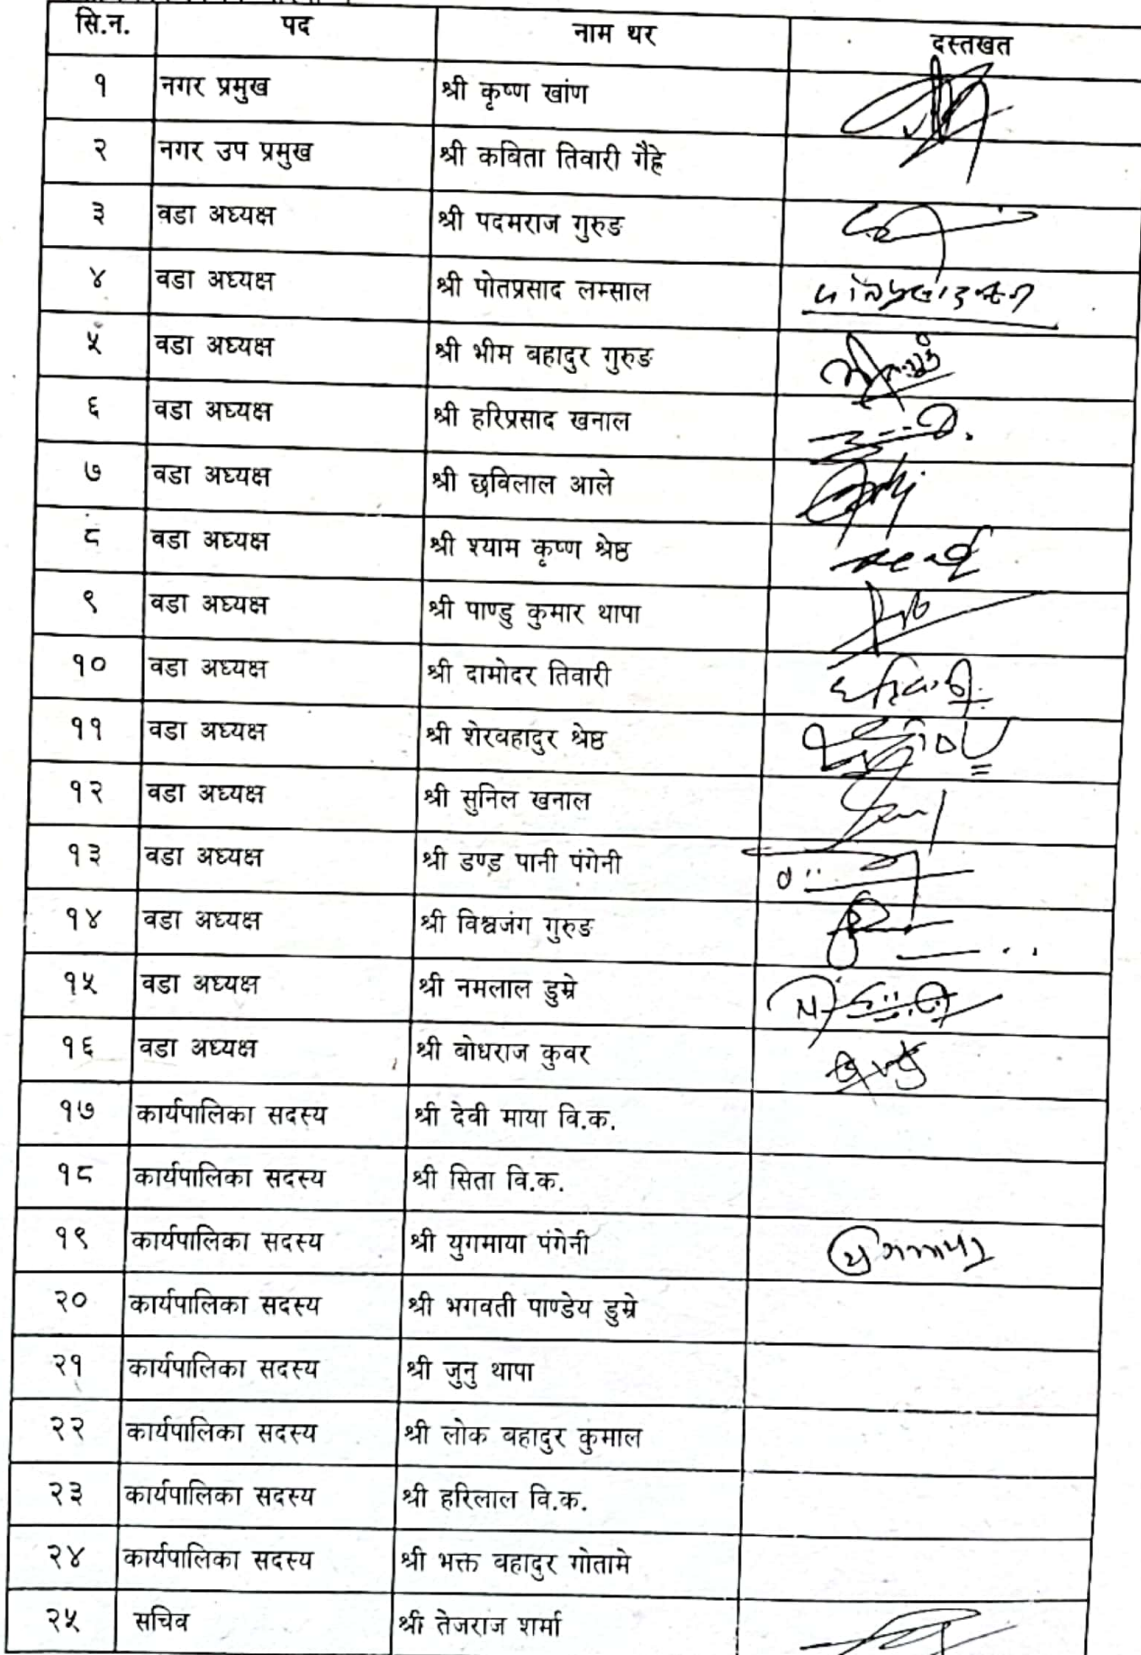 सि.न. पद नाम थर दस्तखत
१ नगर प्रमुख श्री कृष्ण खांण
२ नगर उप प्रमुख श्री कबिता तिवारी गैह्रे
३ वडा अध्यक्ष श्री पदमराज गुरुङ
४ वडा अध्यक्ष श्री पोतप्रसाद लम्साल
५ वडा अध्यक्ष श्री भीम बहादुर गुरुङ
६ वडा अध्यक्ष श्री हरिप्रसाद खनाल
७ वडा अध्यक्ष श्री छविलाल आले
८ वडा अध्यक्ष श्री श्याम कृष्ण श्रेष्ठ
९ वडा अध्यक्ष श्री पाण्डु कुमार थापा
१० वडा अध्यक्ष श्री दामोदर तिवारी
११ वडा अध्यक्ष श्री शेरवहादुर श्रेष्ठ
१२ वडा अध्यक्ष श्री सुनिल खनाल
१३ वडा अध्यक्ष श्री डण्ड पानी पंगेनी
१४ वडा अध्यक्ष श्री विश्वजंग गुरुङ
१५ वडा अध्यक्ष श्री नमलाल डुम्रे
१६ वडा अध्यक्ष श्री बोधराज कुवर
१७ कार्यपालिका सदस्य श्री देवी माया वि.क.
१८ कार्यपालिका सदस्य श्री सिता वि.क.
१९ कार्यपालिका सदस्य श्री युगमाया पंगेनी
२० कार्यपालिका सदस्य श्री भगवती पाण्डेय डुम्रे
२१ कार्यपालिका सदस्य श्री जुनु थापा
२२ कार्यपालिका सदस्य श्री लोक बहादुर कुमाल
२३ कार्यपालिका सदस्य श्री हरिलाल वि.क.
२४ कार्यपालिका सदस्य श्री भक्त बहादुर गोतामे
२५ सचिव श्री तेजराज शर्मा